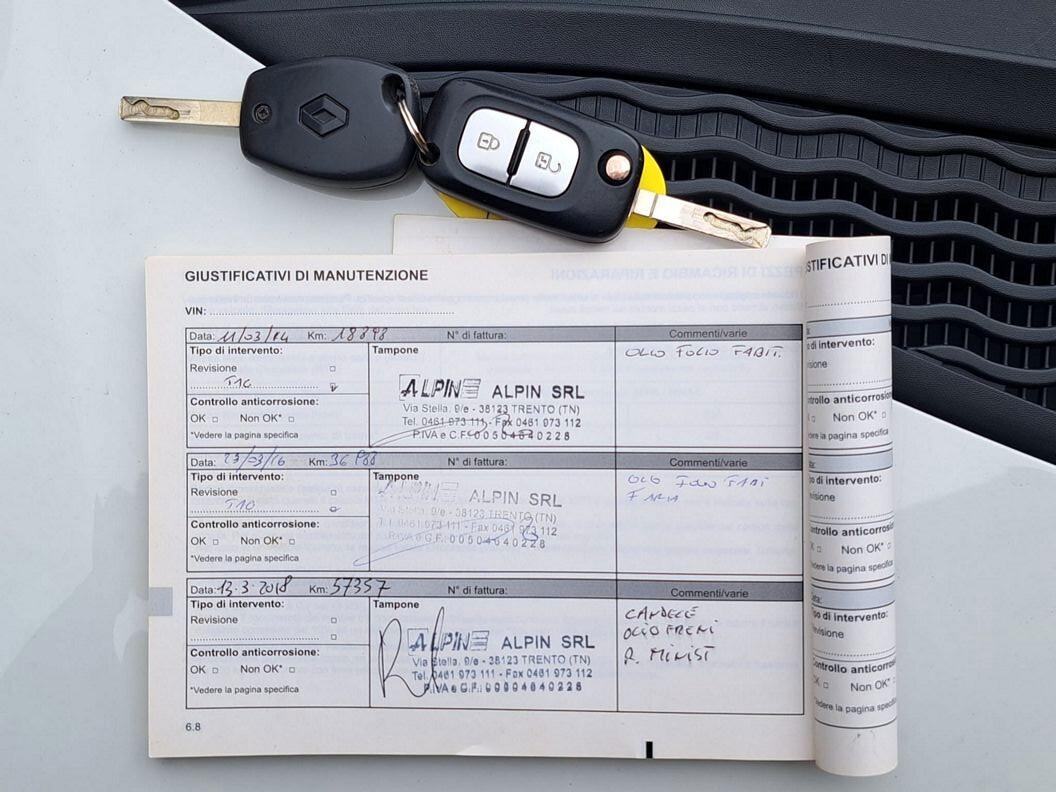 GIUSTIFICATIVI DI MANUTENZIONE
VIN:
Data: 11/03/14 Km: 18393 N° di fattura: Commenti/varie
Tipo di intervento: Tampone OLIO FILTRO
Revisione
ALPINE ALPIN SRL
Controllo anticorrosione: Via Stella, 9/e - 38123 TRENTO (TN)
OK Non OK* Tel. 0461 973 111 - Fax 0461 973 112
*Vedere la pagina specifica P.IVA e C.F.: 00504640228
Data: 23/03/16 Km: N° di fattura: Commenti/varie
Tipo di intervento: Tampone
Revisione
ALPINE ALPIN SRL
Controllo anticorrosione: Via Stella, 9/e - 38123 TRENTO (TN)
OK Non OK* Tel. 0461 973 111 - Fax 0461 973 112
*Vedere la pagina specifica P.IVA e C.F.: 00504640228
Data: 13-3-2018 Km: 57357 N° di fattura: Commenti/varie
Tipo di intervento: Tampone CANDELE
Revisione OLIO FRENI
ALPINE ALPIN SRL R. MINIST
Controllo anticorrosione: Via Stella, 9/e - 38123 TRENTO (TN)
OK Non OK* Tel. 0461 973 111 - Fax 0461 973 112
*Vedere la pagina specifica P.IVA e C.F.: 00504640228
6.8
PEZZI DI RICAMBIO E RIPARAZIONI
STIFICATIVI DI
o di intervento:
sione
ntrollo anticorros
Non OK*
edere la pagina specifi
Data:
po di intervento:
evisione
ontrollo anticorro
Non OK*
Vedere la pagina specif
Data:
Tipo di intervento:
Revisione
Controllo anticorros
OK Non OK*
*Vedere la pagina specif